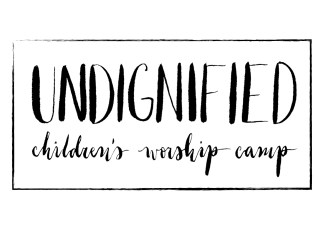 UNDIGNIFIED
children's worship camp